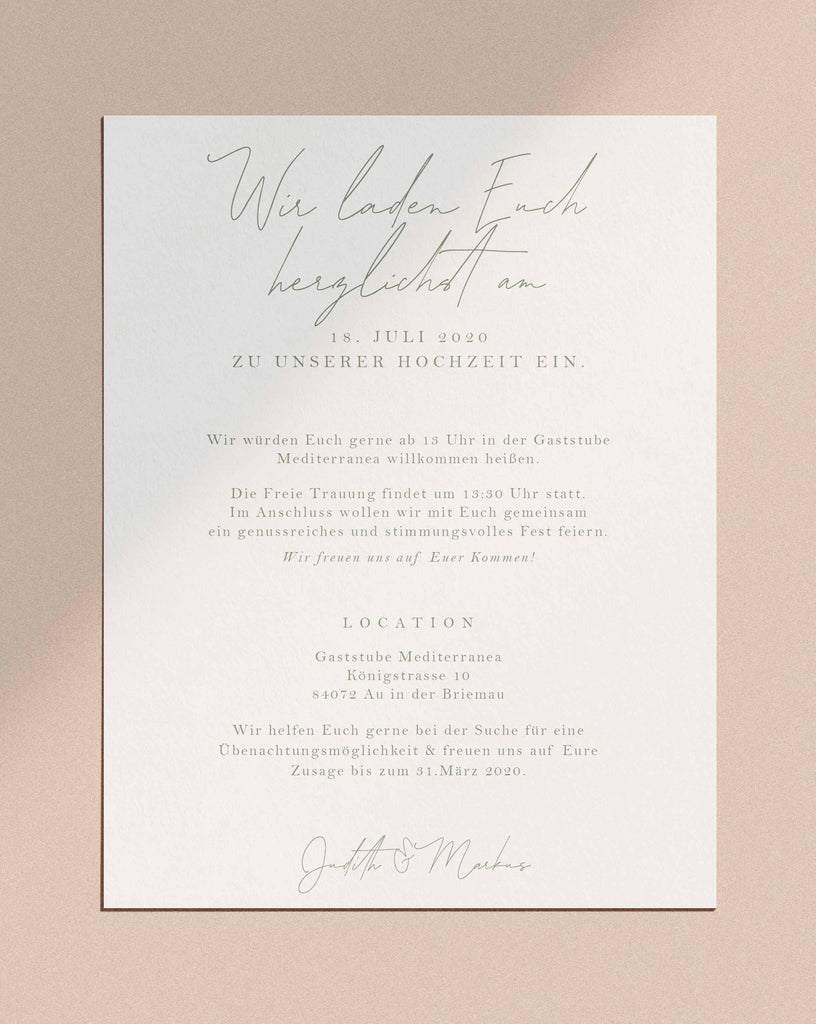 Wir laden Euch
herzlichst am
18. JULI 2020
ZU UNSERER HOCHZEIT EIN.
Wir würden Euch gerne ab 13 Uhr in der Gaststube
Mediterranea willkommen heißen.
Die Freie Trauung findet um 13:30 Uhr statt.
Im Anschluss wollen wir mit Euch gemeinsam
ein genussreiches und stimmungsvolles Fest feiern.
Wir freuen uns auf Euer Kommen!
LOCATION
Gaststube Mediterranea
Königstrasse 10
84072 Au in der Briemau
Wir helfen Euch gerne bei der Suche für eine
Übenachtungsmöglichkeit & freuen uns auf Eure
Zusage bis zum 31.März 2020.
Judith & Markus